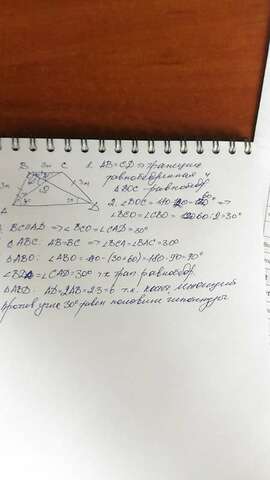 B 3м C
3м 3м
A D
1. AB=CD => трапеция
равнобедренная
△BOC - равнобедр.
2. ∠BOC = 180-120=60° =>
∠BCO=∠CBO = 60:2=30°
3. BC∥AD => ∠BCO=∠CAD=30°
△ABC: AB=BC => ∠BCA=∠BAC=30°
△ABD: ∠ABD=180-(30+60)=180-90=90°
∠BDA=∠CAD=30° т.к трап равнобедр.
△ABD: AD=2AB=2·3=6 т.к. катет, лежащий
против угла 30° равен половине гипотенузы